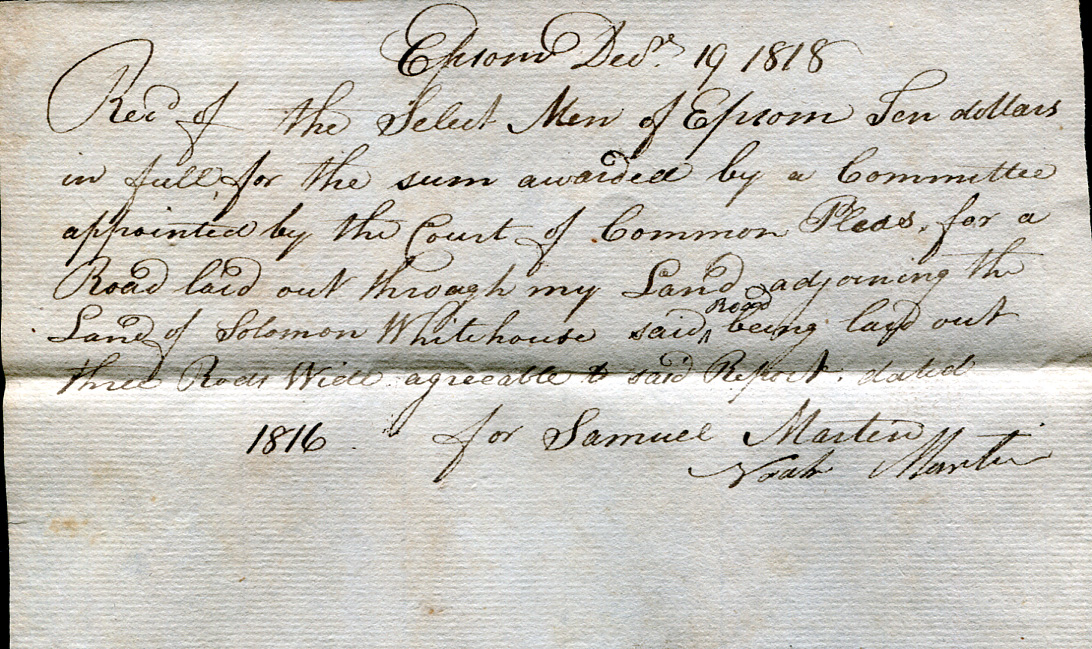 Epsom Decr. 19 1818
Recd of the Select Men of Epsom Ten dollars
in full, for the sum awarded by a Committee
appointed by the Court of Common Pleas, for a
Road laid out through my Land adjoining the
Land of Solomon Whitehouse said ^Road being layd out
three Rods Wide agreeable to said Report. dated
1816 for Samuel Martin
Noah Martin